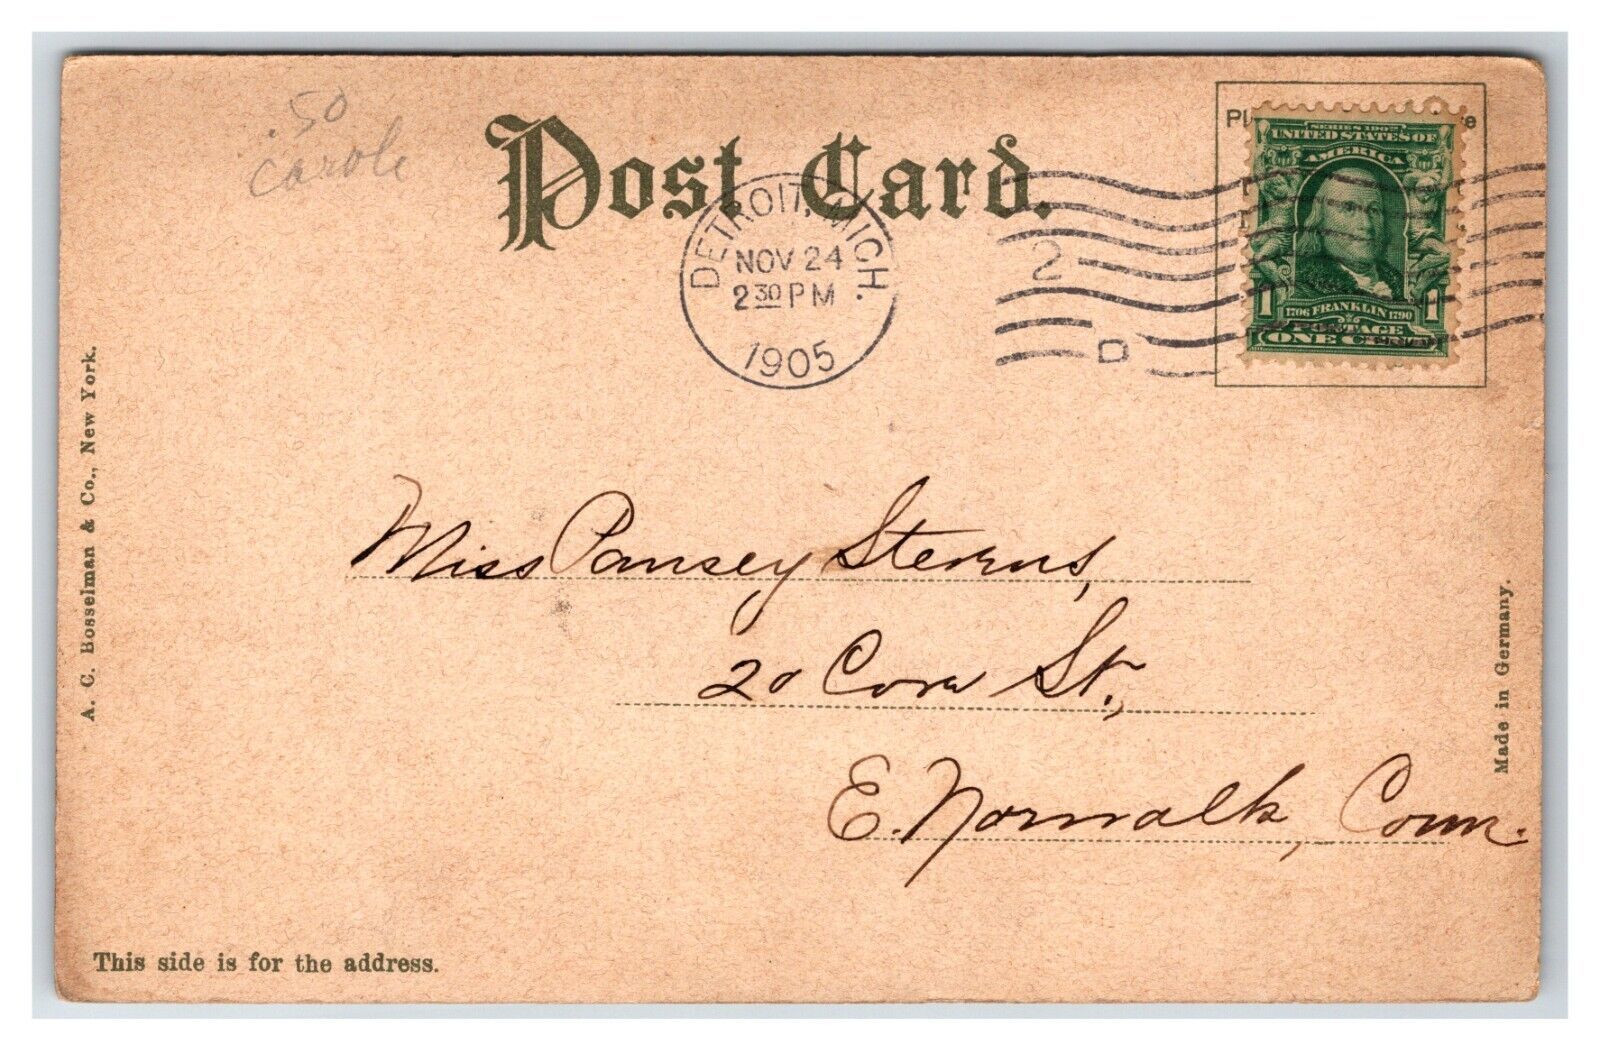 .50
Carole
Post Card.
DETROIT, MICH.
NOV 24
2 30 PM
1905
2
D
SERIES 1902
UNITED STATES OF
AMERICA
1 1
1706 FRANKLIN 1790
POSTAGE
ONE
A. C. Bosselman & Co., New York.
Miss Pansey Sterns,
20 St.,
E. Norwalk, Conn.
Made in Germany.
This side is for the address.